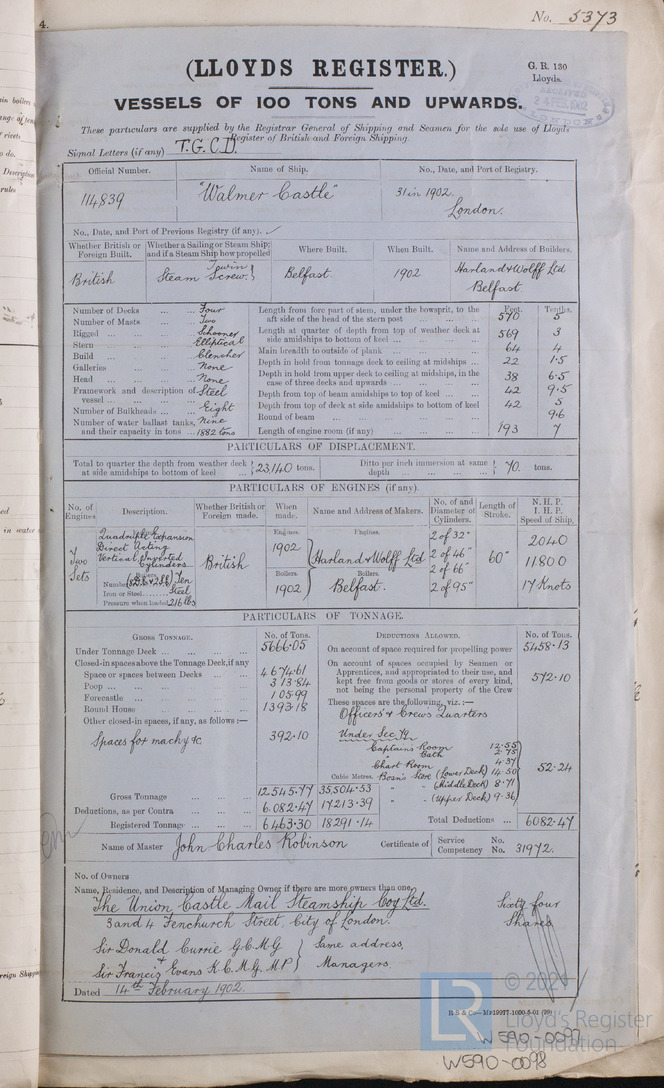 4.
No. 5373
(LLOYDS REGISTER.)
G. R. 130
Lloyds.
VESSELS OF 100 TONS AND UPWARDS.
RECEIVED
LONDON
These particulars are supplied by the Registrar General of Shipping and Seamen for the sole use of Lloyds
Register of British and Foreign Shipping.
Signal Letters (if any) T.G.C.D.
Official Number. Name of Ship. No., Date, and Port of Registry.
114839 "Walmer Castle" 31 in 1902.
London.
No., Date, and Port of Previous Registry (if any).
Whether British or Foreign Built. Whether a Sailing or Steam Ship; and if a Steam Ship how propelled Where Built. When Built. Name and Address of Builders.
British Steam Twin Screw. Belfast. 1902 Harland & Wolff Ltd
Belfast
Number of Decks ... ... Four
Number of Masts ... ... Two
Rigged ... ... Schooner
Stern ... ... Elliptical
Build ... ... Clencher
Galleries ... ... None
Head ... ... None
Framework and description of vessel ... ... Steel
Number of Bulkheads ... ... Eight
Number of water ballast tanks, and their capacity in tons ... Nine 1882 tons
Feet. Tenths.
Length from fore part of stem, under the bowsprit, to the aft side of the head of the stern post ... 570 5
Length at quarter of depth from top of weather deck at side amidships to bottom of keel ... 569 3
Main breadth to outside of plank ... 64 4
Depth in hold from tonnage deck to ceiling at midships ... 22 1.5
Depth in hold from upper deck to ceiling at midships, in the case of three decks and upwards ... 38 6.5
Depth from top of beam amidships to top of keel ... 42 9.5
Depth from top of deck at side amidships to bottom of keel 42 5
Round of beam ... 9.6
Length of engine room (if any) ... 193 7
PARTICULARS OF DISPLACEMENT.
Total to quarter the depth from weather deck at side amidships to bottom of keel ... 23,140 tons. Ditto per inch immersion at same depth ... 70. tons.
PARTICULARS OF ENGINES (if any).
No. of Engines. Description. Whether British or Foreign made. When made. Name and Address of Makers. No. of and Diameter of Cylinders. Length of Stroke. N. H. P. I. H. P. Speed of Ship.
Two Sets
Quadruple Expansion
Direct Acting
Vertical Inverted
Cylinders
Number Ten
Iron or Steel Steel
Pressure when loaded 216 lbs
British
Engines. 1902
Boilers. 1902
Engines. Harland & Wolff Ltd
Boilers. Belfast.
2 of 32"
2 of 46"
2 of 66"
2 of 95"
60"
2040
11800
17 Knots
PARTICULARS OF TONNAGE.
GROSS TONNAGE. No. of Tons.
Under Tonnage Deck ... 5666.05
Closed-in spaces above the Tonnage Deck, if any
Space or spaces between Decks ... 4674.61
Poop ... 313.84
Forecastle ... 105.99
Round House ... 1393.18
Other closed-in spaces, if any, as follows:—
Spaces for machy &c. 392.10
Cubic Metres.
Gross Tonnage ... 12.545.77 35,504.53
Deductions, as per Contra ... 6.082.47 17213.39
Registered Tonnage ... 6463.30 18291.14
DEDUCTIONS ALLOWED. No. of Tons.
On account of space required for propelling power 5458.13
On account of spaces occupied by Seamen or Apprentices, and appropriated to their use, and kept free from goods or stores of every kind, not being the personal property of the Crew 572.10
These spaces are the following, viz.:—
Officers & Crews Quarters
Under Sec 79.
Captains Room 12.55
" Bath 2.75
Chart Room 4.37
Bosn's Store (Lower Deck) 14.50
" " (Middle Deck) 8.71
" " (Upper Deck) 9.36
52.24
Total Deductions ... 6082.47
Name of Master John Charles Robinson Certificate of Service No.
Competency No. 31972.
No. of Owners
Name, Residence, and Description of Managing Owner if there are more owners than one,
The Union Castle Mail Steamship Coy Ltd. Sixty four
3 and 4 Fenchurch Street, City of London. Shares
Sir Donald Currie G.C.M.G. Same address,
& Sir Francis Evans K.C.M.G. MP Managers
Dated 14th February 1902.
LR
© 2021
Lloyd's Register
Foundation
W590-0097
W590-0098